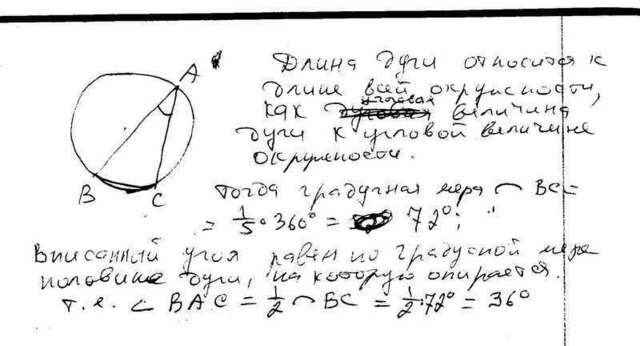 A
B
C
Длина дуги относится к
длине всей окружности,
как угловая величина
дуги к угловой величине
окружности.
Тогда градусная мера ⌒ BC =
= 1/5 · 360° = 72°;
Вписанный угол равен по градусной мере
половине дуги, на которую опирается.
т.е. ∠ BAC = 1/2 ⌒ BC = 1/2 · 72° = 36°